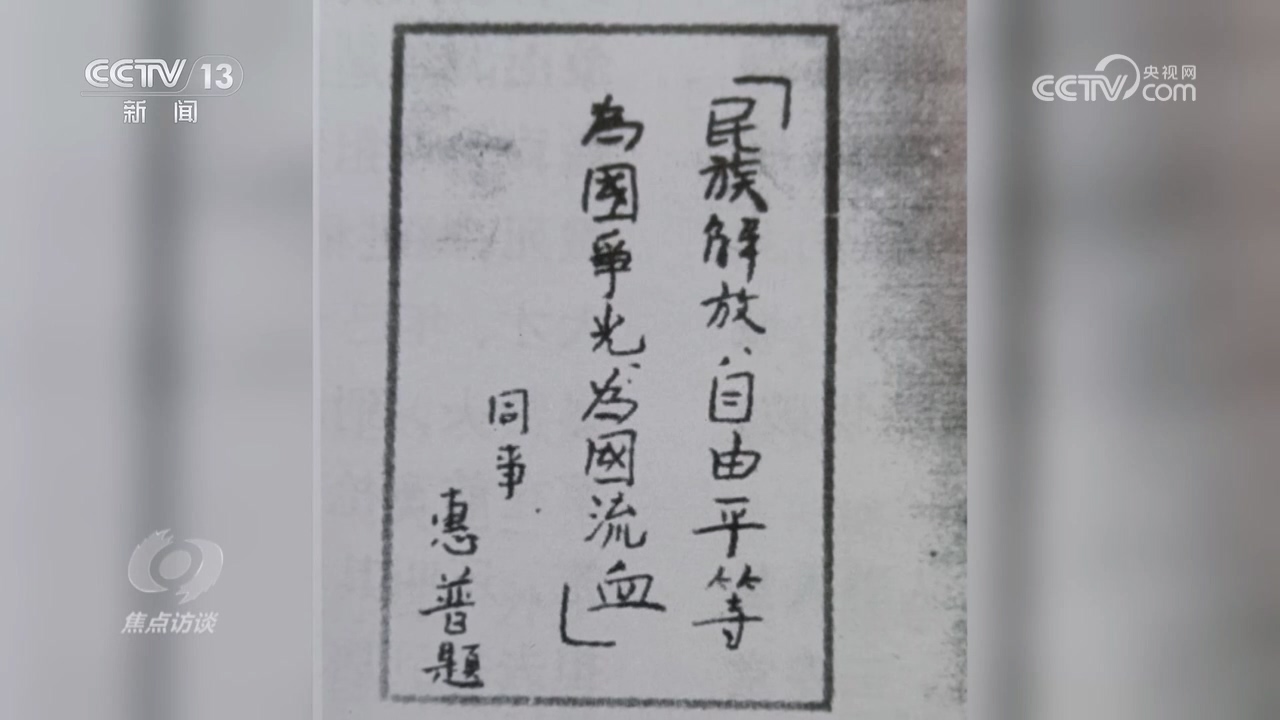 CCTV 13
新闻
央视网
CCTV.com
「民族解放、自由平等
為國爭光、為國流血」
同事
惠普題
焦点访谈